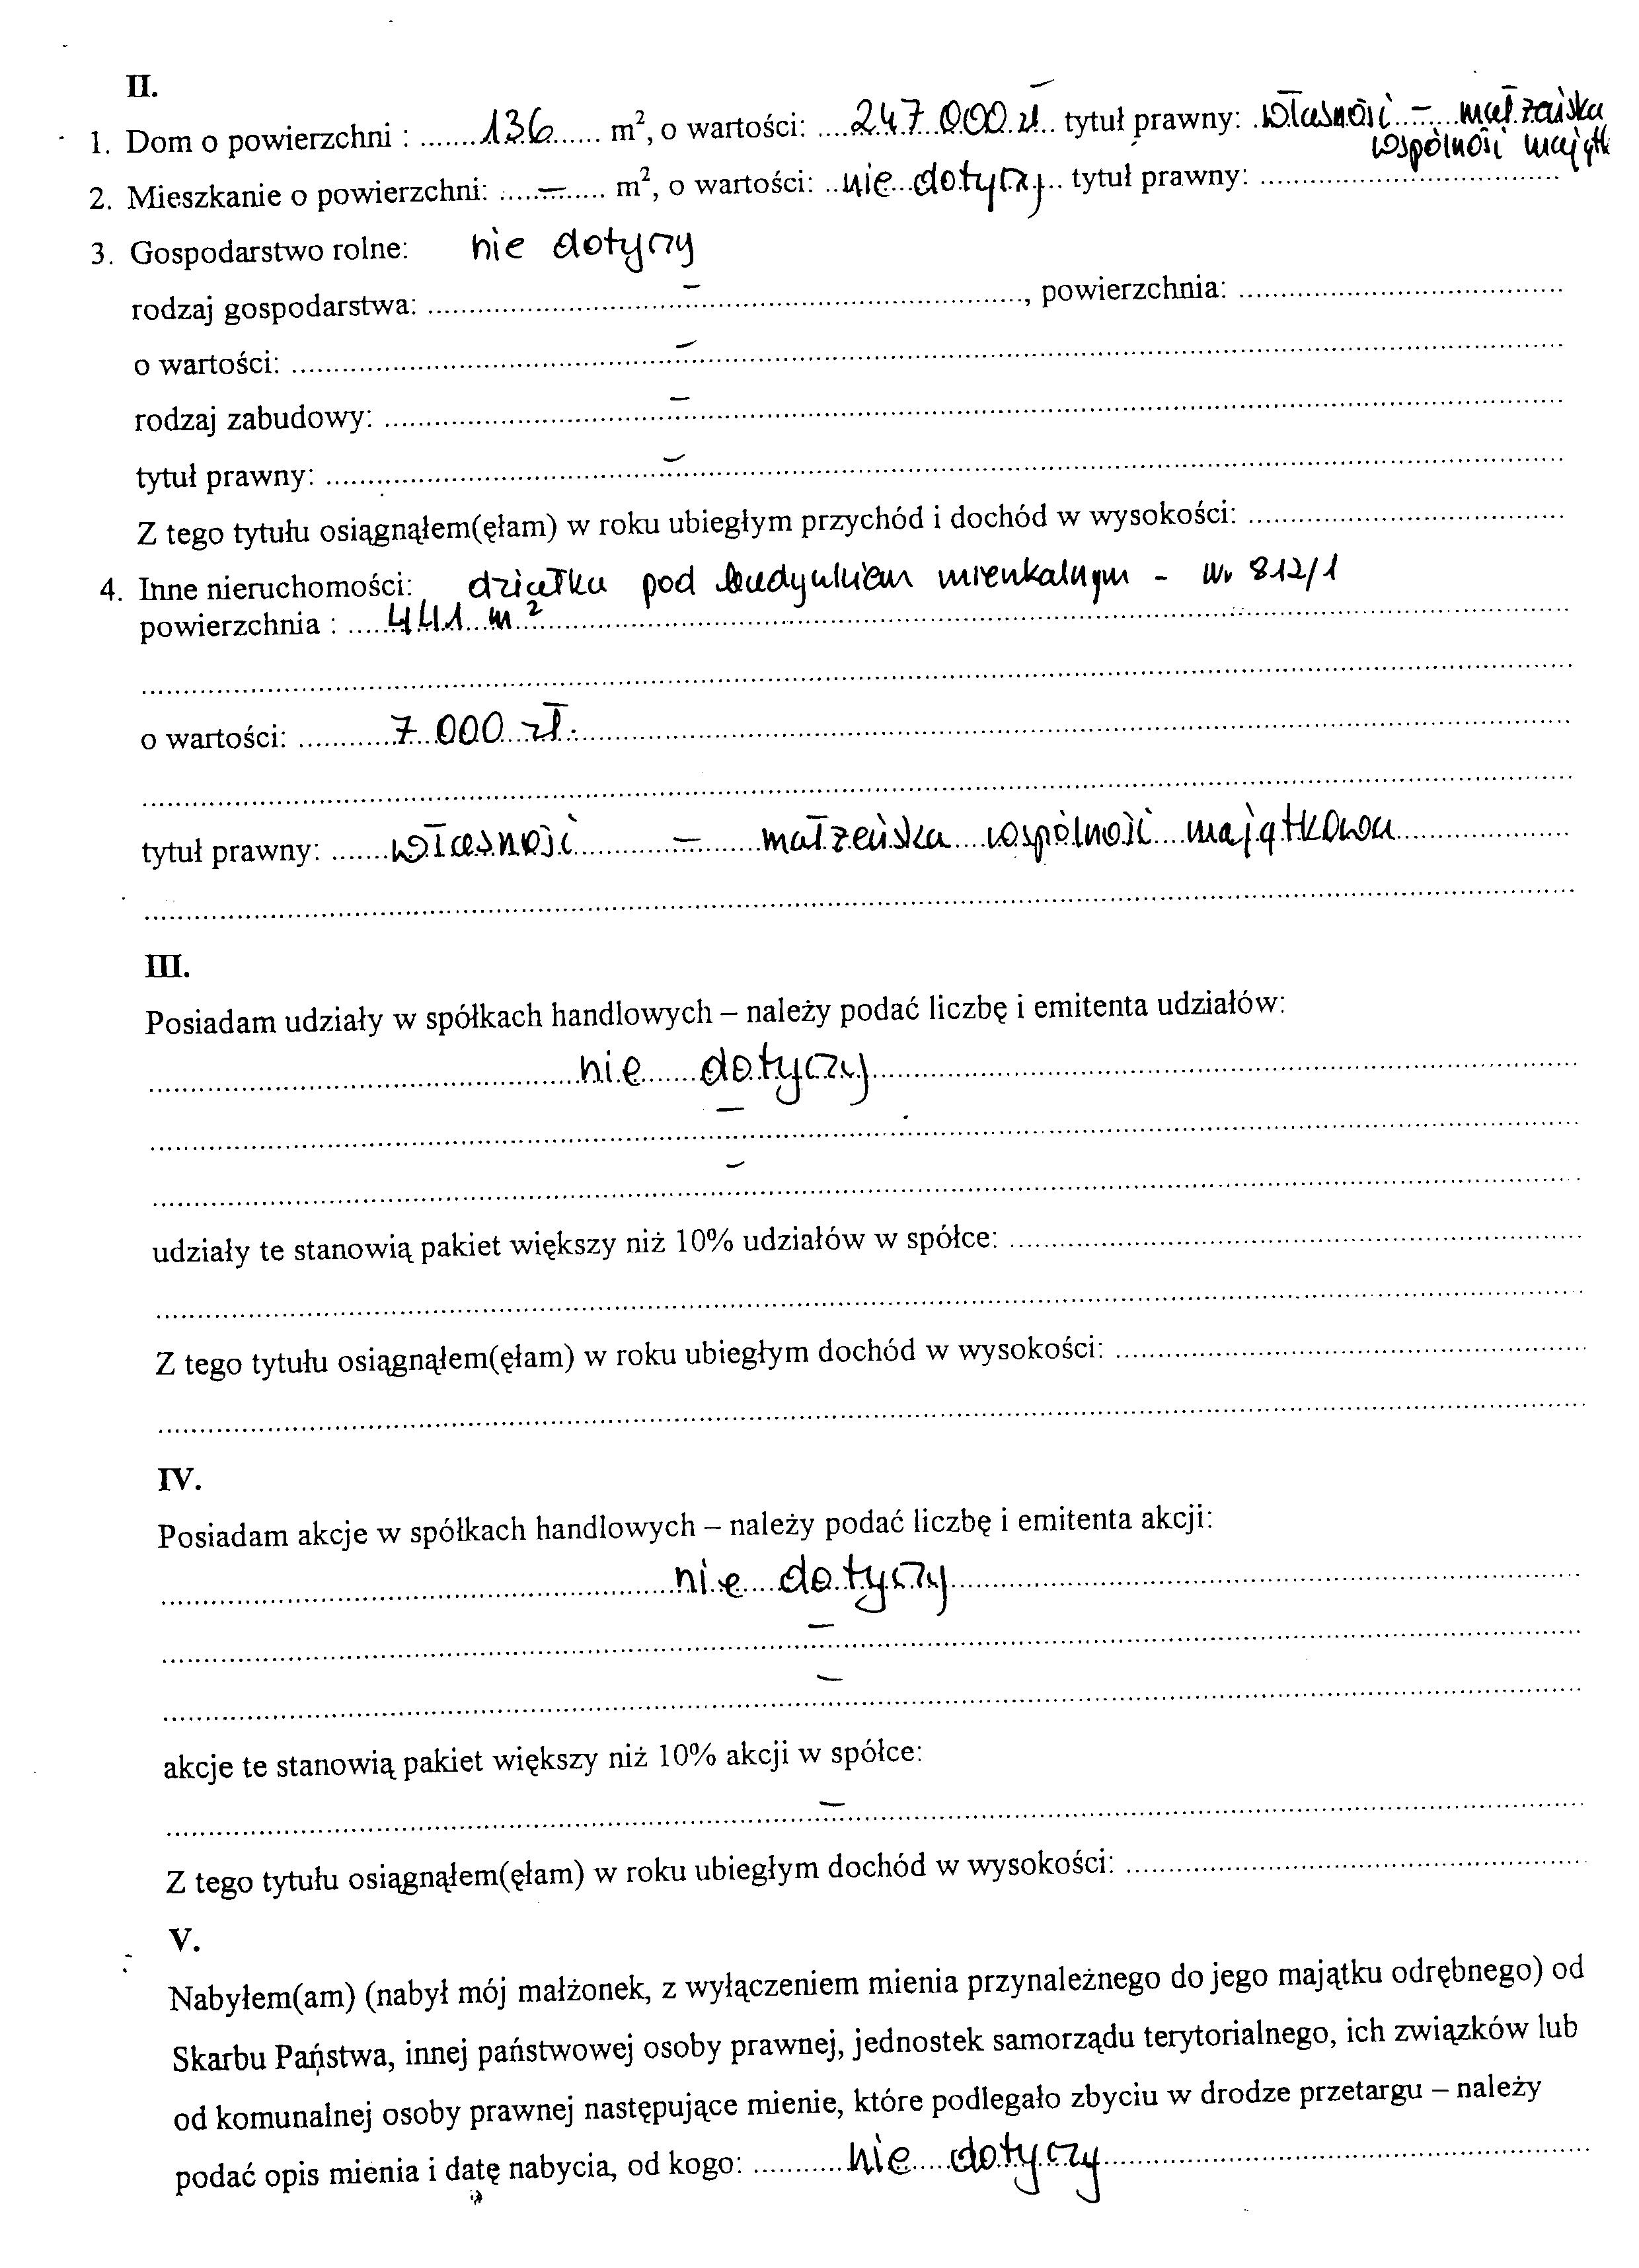 II.
1. Dom o powierzchni : ........136...... m², o wartości: ....247.000 zł.. tytuł prawny: .własność..–...małżeńska
wspólność majątk
2. Mieszkanie o powierzchni: .....–...... m², o wartości: ..nie..dotyczy.. tytuł prawny: ..............................
3. Gospodarstwo rolne: nie dotyczy
rodzaj gospodarstwa: ..............................–..............................., powierzchnia: ..............................
o wartości: ..............................–..............................
rodzaj zabudowy: ..............................–..............................
tytuł prawny: ..............................–..............................
Z tego tytułu osiągnąłem(ęłam) w roku ubiegłym przychód i dochód w wysokości: ..............................
4. Inne nieruchomości: działka pod budynkiem mieszkalnym - nr 812/1
powierzchnia : .....441..m²..............................
............................................................
o wartości: ..........7.000..zł...............................
............................................................
tytuł prawny: ......własność..........–......małżeńska....wspólność....majątkowa..................
............................................................
III.
Posiadam udziały w spółkach handlowych – należy podać liczbę i emitenta udziałów:
..............................nie......dotyczy..............................
..............................–..............................
..............................–..............................
udziały te stanowią pakiet większy niż 10% udziałów w spółce: ..............................
............................................................
Z tego tytułu osiągnąłem(ęłam) w roku ubiegłym dochód w wysokości: ..............................
............................................................
IV.
Posiadam akcje w spółkach handlowych – należy podać liczbę i emitenta akcji:
..............................nie....dotyczy..............................
..............................–..............................
..............................–..............................
akcje te stanowią pakiet większy niż 10% akcji w spółce:
..............................–..............................
Z tego tytułu osiągnąłem(ęłam) w roku ubiegłym dochód w wysokości: ..............................
V.
Nabyłem(am) (nabył mój małżonek, z wyłączeniem mienia przynależnego do jego majątku odrębnego) od
Skarbu Państwa, innej państwowej osoby prawnej, jednostek samorządu terytorialnego, ich związków lub
od komunalnej osoby prawnej następujące mienie, które podlegało zbyciu w drodze przetargu – należy
podać opis mienia i datę nabycia, od kogo: ..........nie....dotyczy..............................